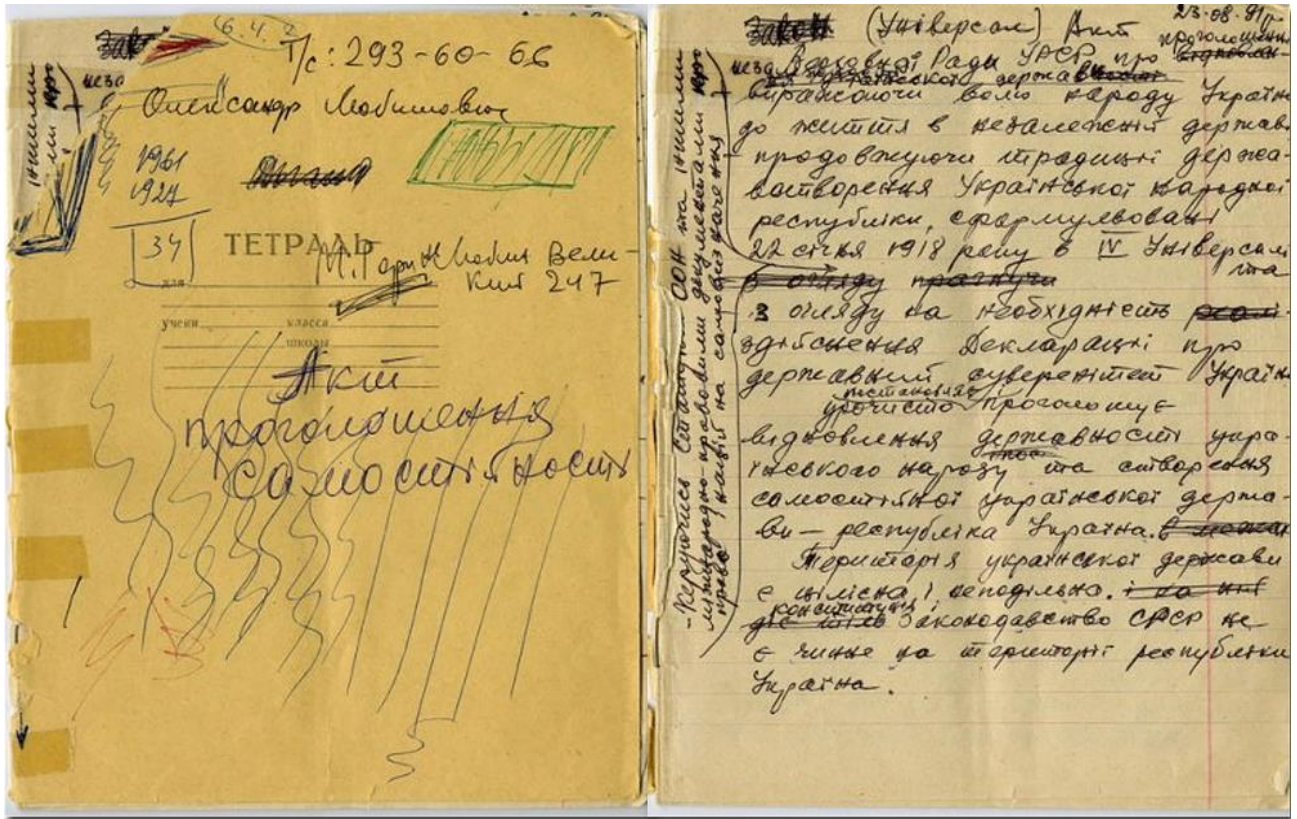 6.4.2
Т/с: 293-60-66
неза
Олександр
1961
1927
34
ТЕТРАДЬ
М. Горинь Вели-
кий 247
для
учени класса
школы
Акт
проголошення
самостійності
23-08-91р.
Закон (Універсал) Акт
проголошення
неза Верховної Ради УРСР про
української держав
виражаючи волю народу Україн
до життя в незалежній державі
продовжуючи традиції держа-
вотворення Української народної
республіки, сформульовані
22 січня 1918 року в IV Універсалі
та
з огляду прагнучи
з огляду на необхідність
здійснення Декларації про
державний суверенітет Україн
урочисто проголошує
відновлення державності укра-
їнського народу та створення
самостійної української держа-
ви — республіка Україна. в межах
Територія української держави
є цілісна і неподільна. і на ній
конституція і
діє тіль законодавство СРСР не
є чинне на території республіки
Україна.
- Керуючись Статутом ООН та іншими
міжнародно-правовими документами про
право націй на самовизначення